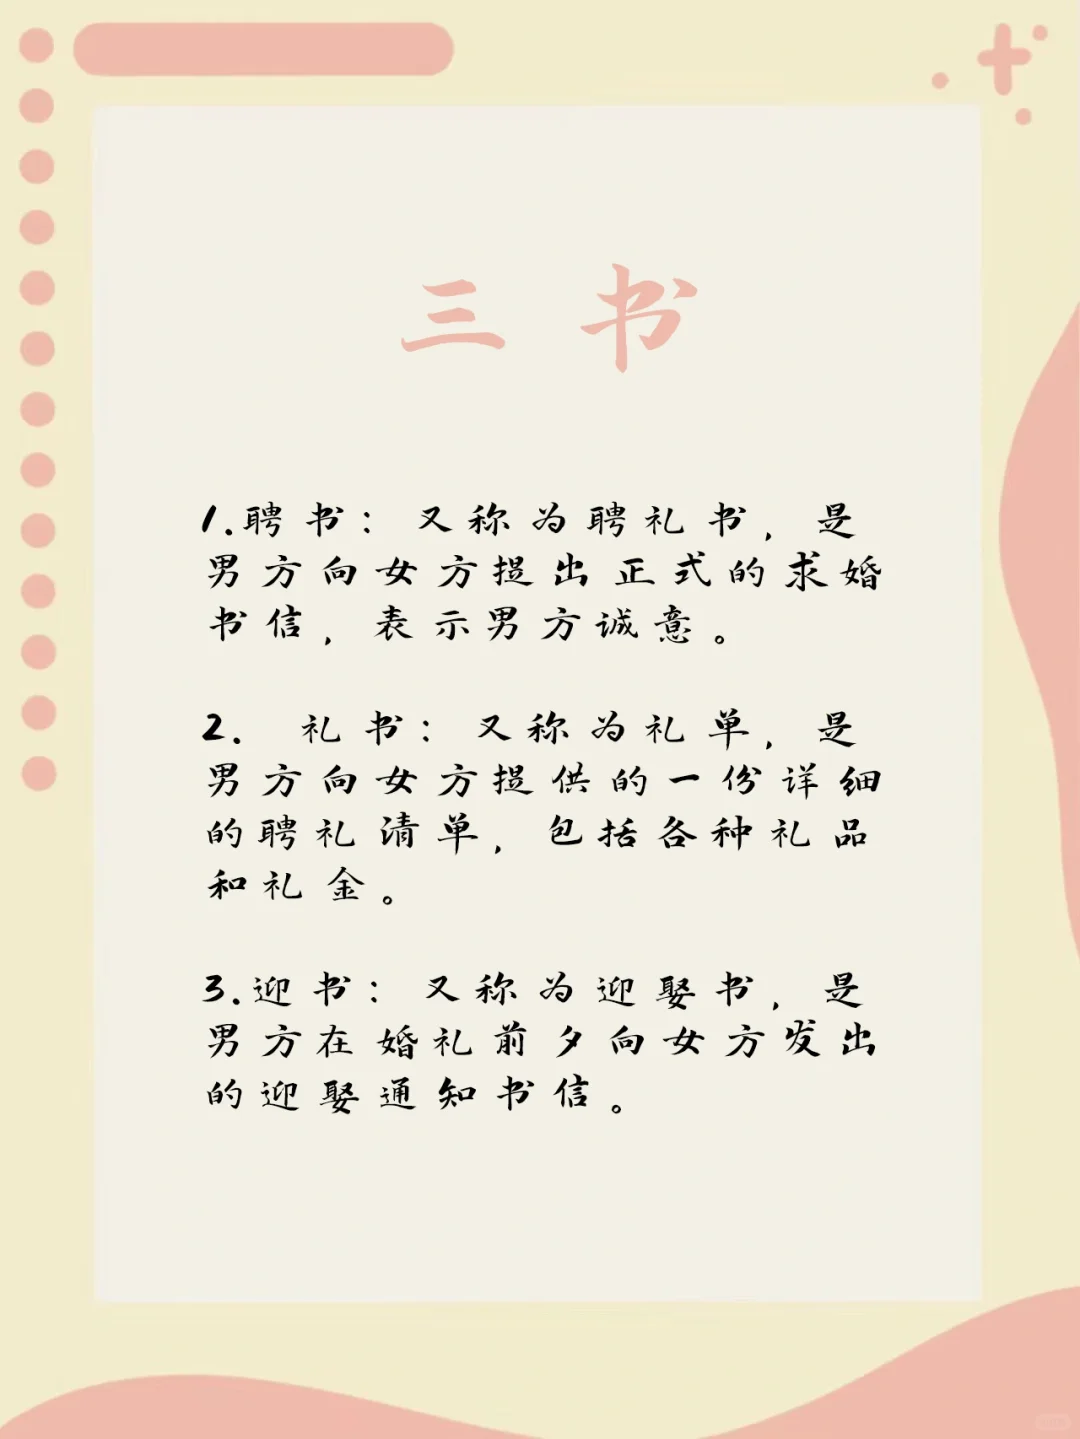 三书
1.聘书：又称为聘礼书，是
男方向女方提出正式的求婚
书信，表示男方诚意。
2. 礼书：又称为礼单，是
男方向女方提供的一份详细
的聘礼清单，包括各种礼品
和礼金。
3.迎书：又称为迎娶书，是
男方在婚礼前夕向女方发出
的迎娶通知书信。